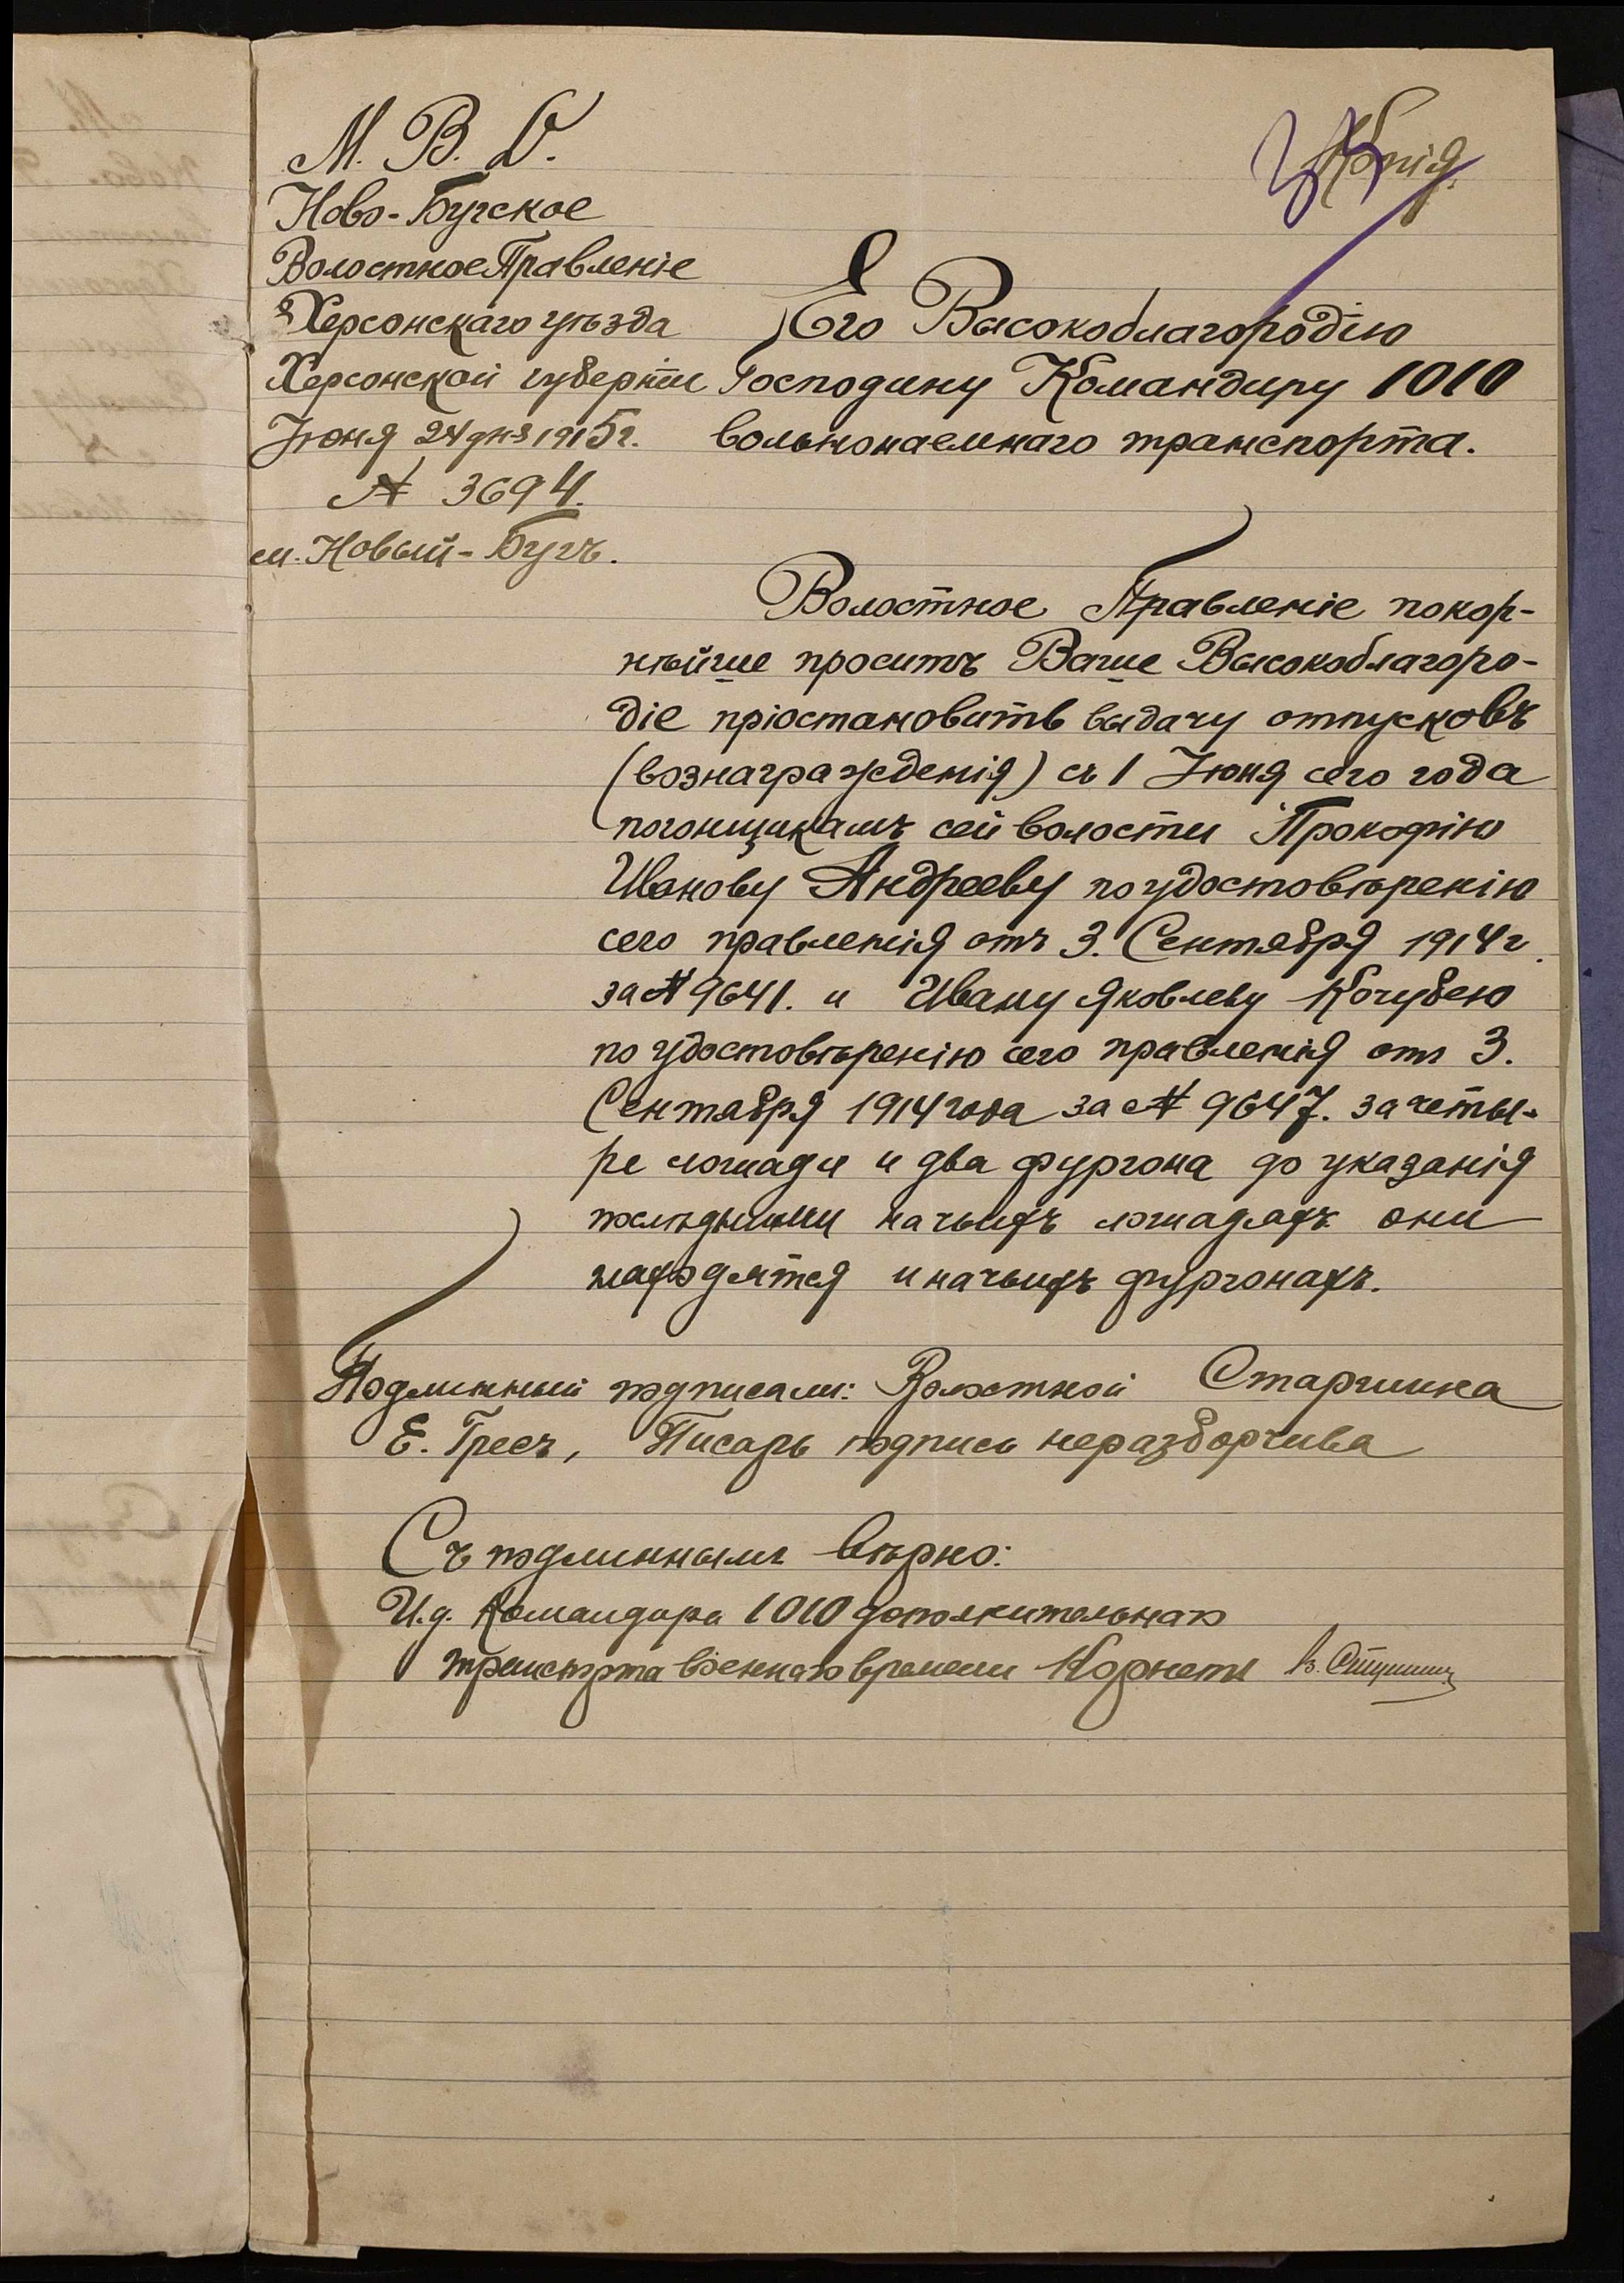 Копія.
М. В. Д.
Ново-Бугское
Волостное Правленіе
Херсонскаго уѣзда
Херсонской губерніи
Іюня 24 дня 1915 г.
№ 3694.
м. Новый-Бугъ.
Его Высокоблагородію
Господину Командиру 1010
вольнонаемнаго транспорта.
Волостное Правленіе покор-
нѣйше проситъ Ваше Высокоблагоро-
діе пріостановить выдачу отпусковъ
(вознагражденія) съ 1 Іюня сего года
погонщикамъ сей волости Прокофію
Иванову Андрееву по удостовѣренію
сего правленія отъ 3. Сентября 1914 г.
за № 9641. и Ивану Яковлеву Кочубею
по удостовѣренію сего правленія отъ 3.
Сентября 1914 года за № 9647. за четы-
ре лошади и два фургона до указанія
послѣдними на чьихъ лошадяхъ они
находятся и на чьихъ фургонахъ.
Подлинный подписали: Волостной Старшина
Е. Гресь, Писарь подпись неразборчива
Съ подлиннымъ вѣрно:
И.д. Командира 1010 дополнительнаго
транспорта военнаго времени Корнетъ